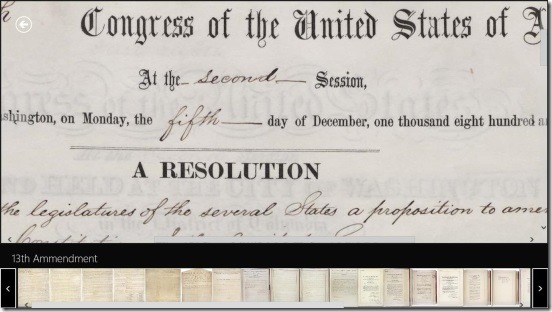 Congress of the United States of A
At the second Session,
ashington, on Monday, the fifth day of December, one thousand eight hundred a
A RESOLUTION
the legislatures of the several States a proposition to amen
13th Ammendment